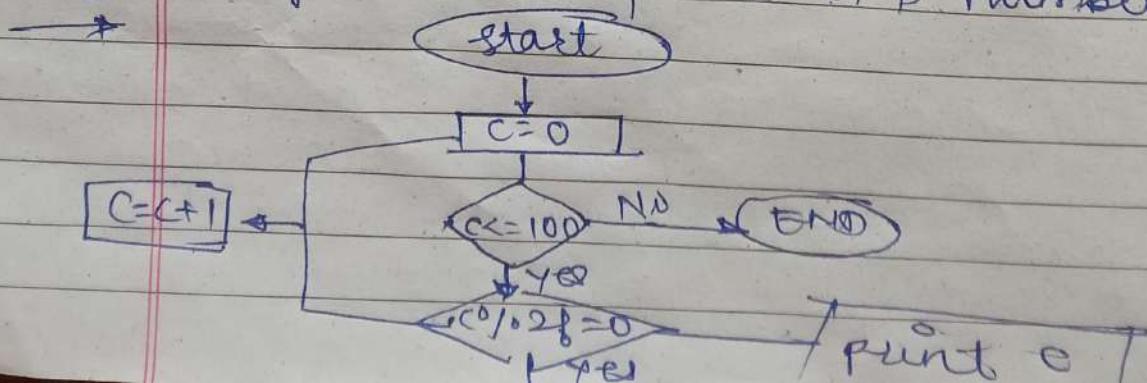 start
C=0
C=C+1
C<=100
No
END
yes
C%2==0
print c
yes